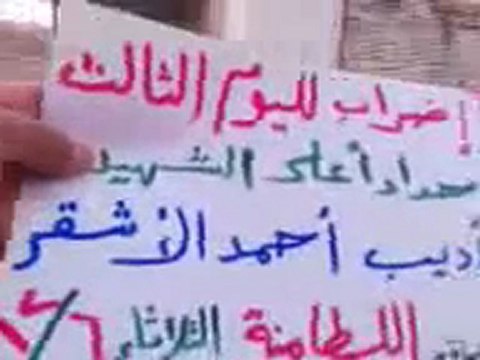 إضراب لليوم الثالث
حداداً على الشهيد
أديب أحمد الأشقر
اللطامنة الثلاثاء